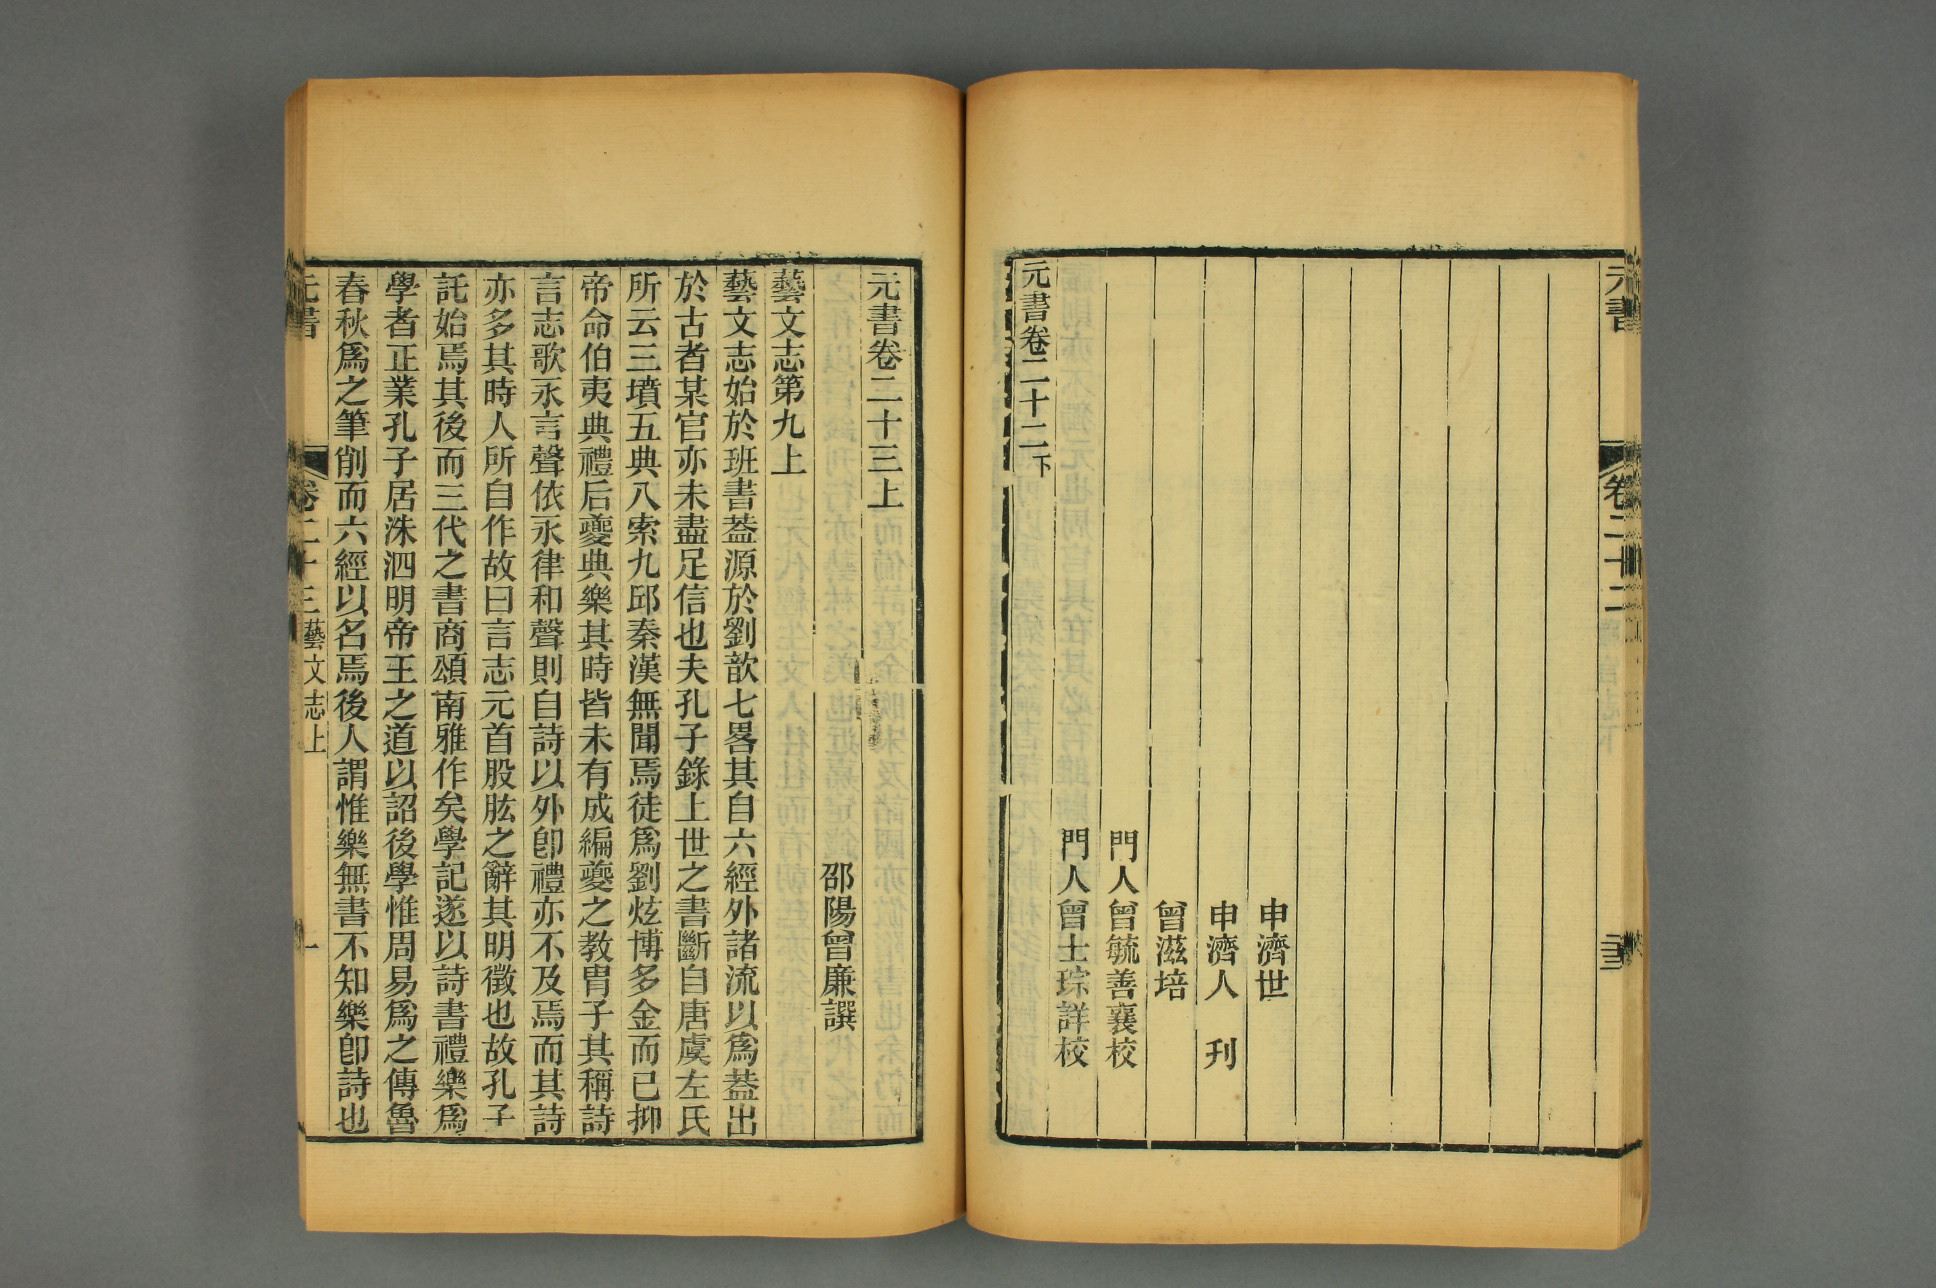 元書
卷二十二
申濟世
申濟人 刋
曾滋培
門人曾毓善襄校
門人曾士琮詳校
元書卷二十二下
元書卷二十三上
邵陽曾廉譔
藝文志第九上
藝文志始於班書葢源於劉歆七畧其自六經外諸流以爲葢出
於古者某官亦未盡足信也夫孔子錄上世之書斷自唐虞左氏
所云三墳五典八索九邱秦漢無聞焉徒爲劉炫博多金而已抑
帝命伯夷典禮后夔典樂其時皆未有成編夔之教冑子其稱詩
言志歌永言聲依永律和聲則自詩以外卽禮亦不及焉而其詩
亦多其時人所自作故曰言志元首股肱之辭其明徵也故孔子
託始焉其後而三代之書商頌南雅作矣學記遂以詩書禮樂爲
學者正業孔子居洙泗明帝王之道以詔後學惟周易爲之傳魯
春秋爲之筆削而六經以名焉後人謂惟樂無書不知樂卽詩也
元書
卷二十三藝文志上
一